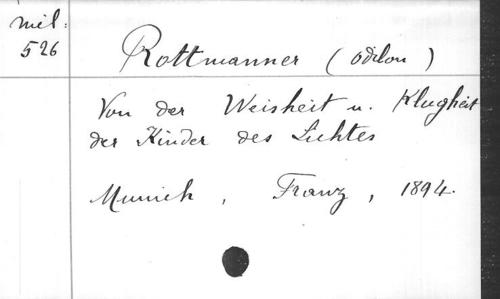 mél.
526
Rottmanner (Odilon)
Von der Weisheit u. Klugheit
der Kinder des Lichtes
Munich, Franz, 1894.